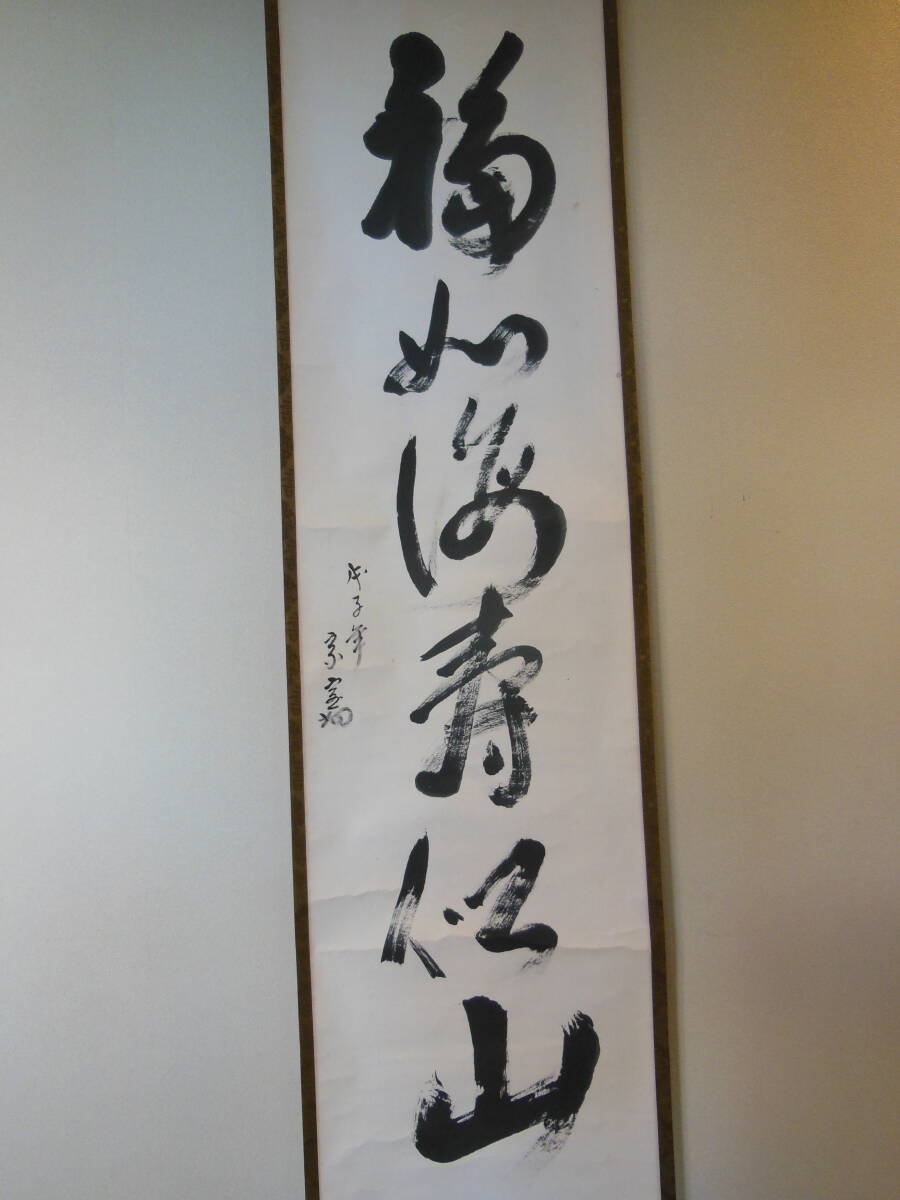 福如海寿似山
戊子年